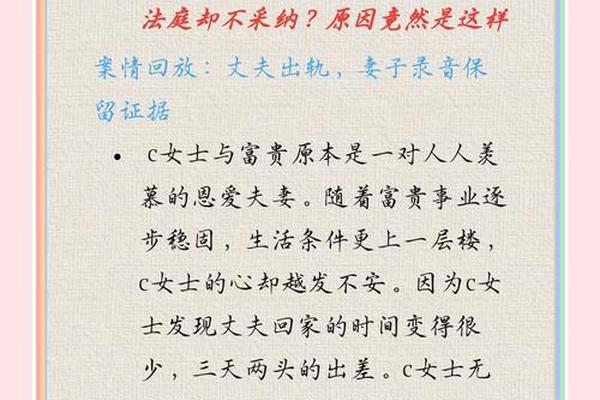 法庭却不采纳？原因竟然是这样
案情回放：丈夫出轨，妻子录音保
留证据
• c女士与富贵原本是一对人人羡
慕的恩爱夫妻。随着富贵事业逐
步稳固，生活条件更上一层楼，
c女士的心却越发不安。因为c女
士发现丈夫回家的时间变得很
少，三天两头的出差。c女士无